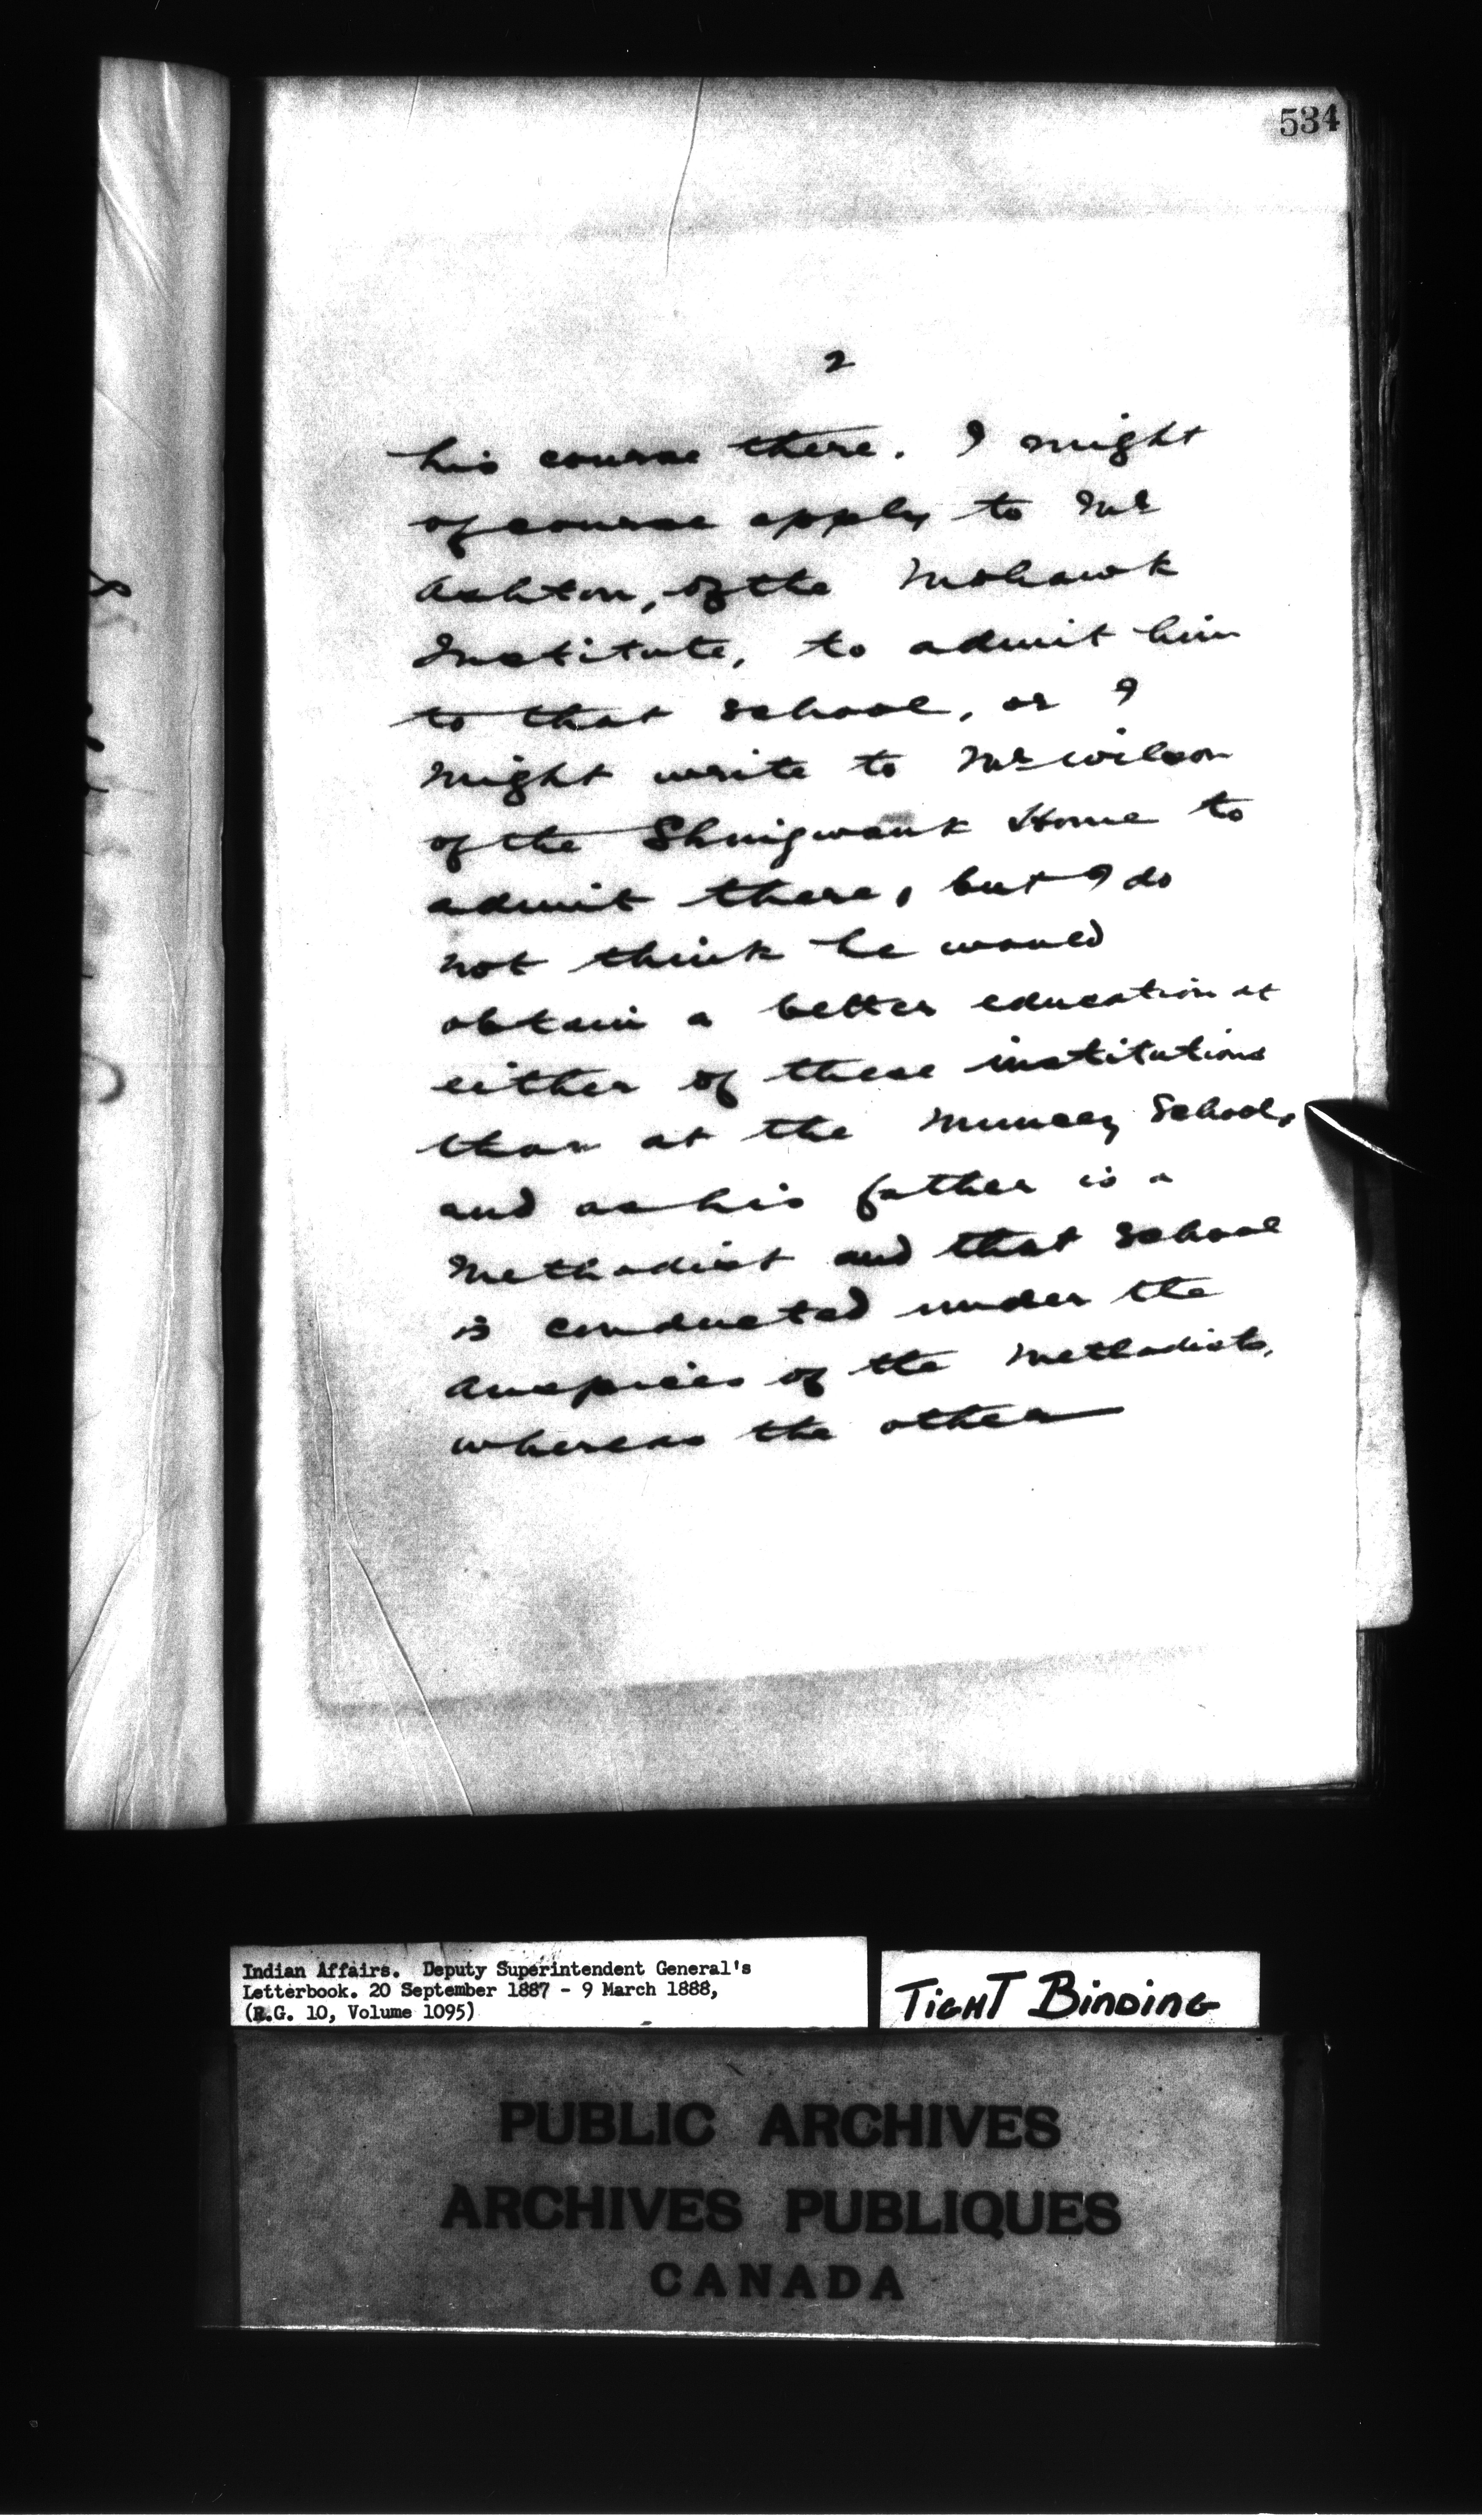 534
2
his course there. I might
of course apply to Mr
Ashton, of the Mohawk
Institute, to admit him
to that school, or I
might write to Mr Wilson
of the Shingwauk Home to
admit there, but I do
not think he would
obtain a better education at
either of these institutions
than at the Muncey School,
and as his father is a
Methodist and that School
is conducted under the
auspices of the Methodists,
whereas the other
Indian Affairs. Deputy Superintendent General's
Letterbook. 20 September 1887 - 9 March 1888,
(R.G. 10, Volume 1095)
TIGHT BINDING
PUBLIC ARCHIVES
ARCHIVES PUBLIQUES
CANADA